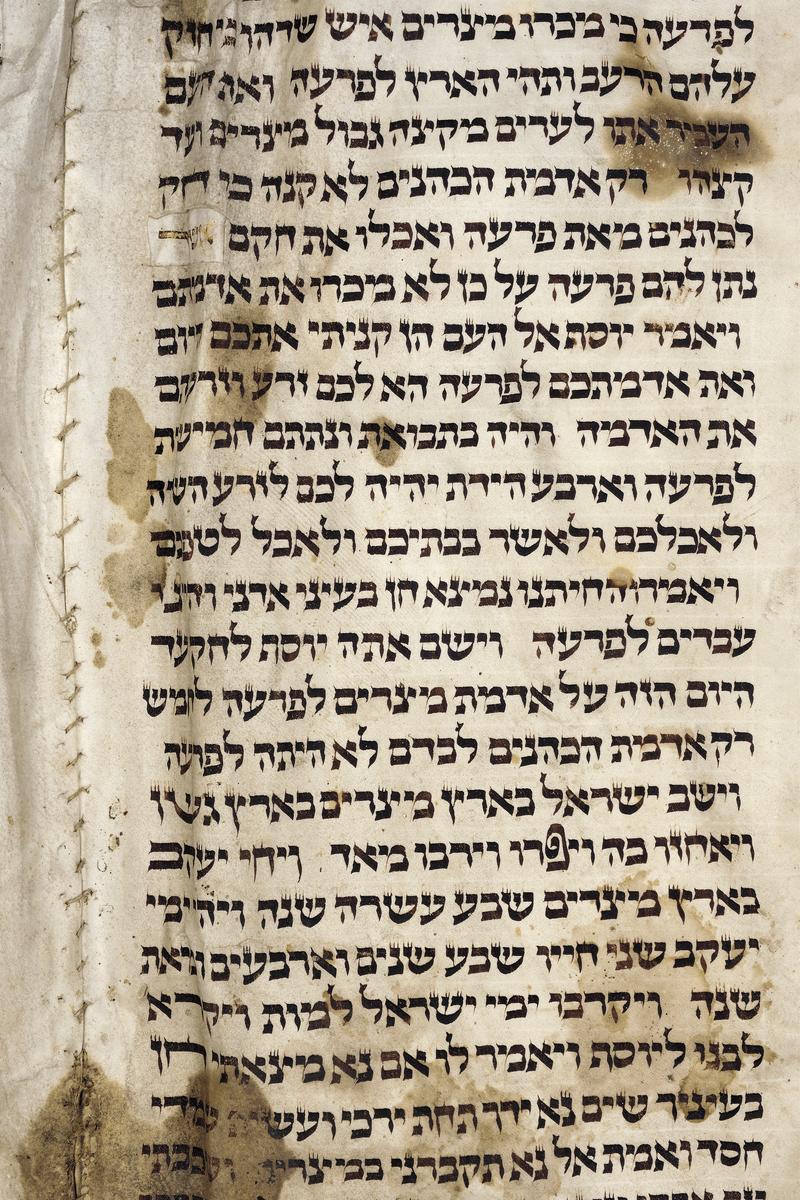 לפרעה כי מכרו מיצרים איש שדהו כי חזק
עלהם הרעב ותהי הארץ לפרעה ואת העם
העביר אתו לערים מקיצה גבול מיצרים ועד
קיצהו רק אדמת הכהנים לא קנה כי חק
לכהנים מאת פרעה ואכלו את חקם אשר
נתן להם פרעה על כן לא מכרו את אדמתם
ויאמר יוסף אל העם הן קניתי אתכם היום
ואת אדמתכם לפרעה הא לכם זרע וזרעתם
את האדמה והיה בתבואת ונתתם חמישת
לפרעה וארבע הידת יהיה לכם לזרע השדה
ולאכלכם ולאשר בבתיכם ולאכל לטפכם
ויאמרו החיתנו נמצא חן בעיני אדני והיינו
עבדים לפרעה וישם אתה יוסף לחק עד
היום הזה על אדמת מיצרים לפרעה לחמש
רק אדמת הכהנים לבדם לא היתה לפרעה
וישב ישראל בארץ מיצרים בארץ גשן
ויאחזו בה ויפרו וירבו מאד ויחי יעקב
בארץ מיצרים שבע עשרה שנה ויהי ימי
יעקב שני חייו שבע שנים וארבעים ומאת
שנה ויקרבו ימי ישראל למות ויקרא
לבנו ליוסף ויאמר לו אם נא מיצאתי חן
בעיניך שים נא ידך תחת ירכי ועשית עמדי
חסד ואמת אל נא תקברני במיצרים ושכבתי